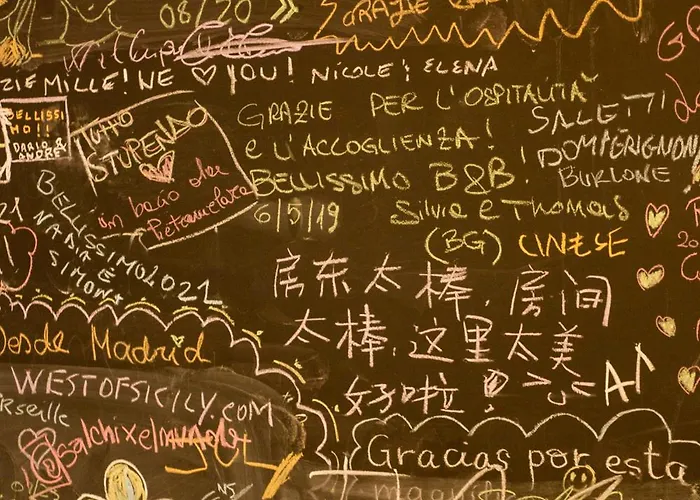 08/20
GRAZIE
ZIE MILLE! WE ♡ YOU! NICOLE; ELENA
BELLISSI
MO!!
DARIO &
TUTTO
STUPENDO
un bacio da
GRAZIE PER L'OSPITALITÀ
e L'ACCOGLIENZA!
BELLISSIMO B&B!
6/5/19 Silvia e Thomas
(BG) CINESE
SALETTI
DOMPERIGNON
BURLONE
21
BELLISSIMO 2021
NADIA E
SIMON
房东太棒,房间
太棒,这里太美
好啦!
Desde Madrid
WESTOFSICILY.COM
rseille
salchixe
Gracias por esta
NS